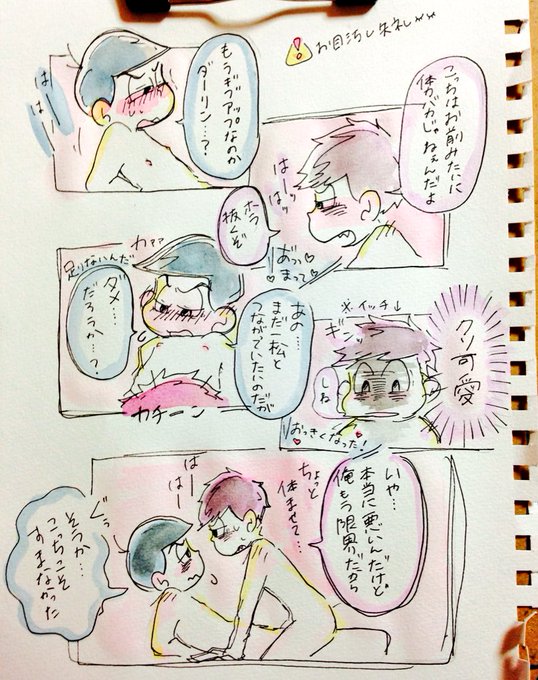 お目汚し失礼ww
もうギブアップなのか
ダーリン…?
はー
はー
こっちはお前みたいに
体力バカじゃねぇんだよ
はーっ
はーっ
ホラ
抜くぞ
あっ♡
まって♡
カァァ
足りないんだ
あの…
まだ一松と
つながっていたいのだが
ダメ…
だろうか…?
カチーン
クソ可愛
※イッチ↓
ギンッ
しね
おっきくなった!
いや…
本当に悪いんだけど
俺もう限界だから
ちょっと
休ませて…
はー
はー
ぐぅ
そうか…
こっちこそ
すまなかった